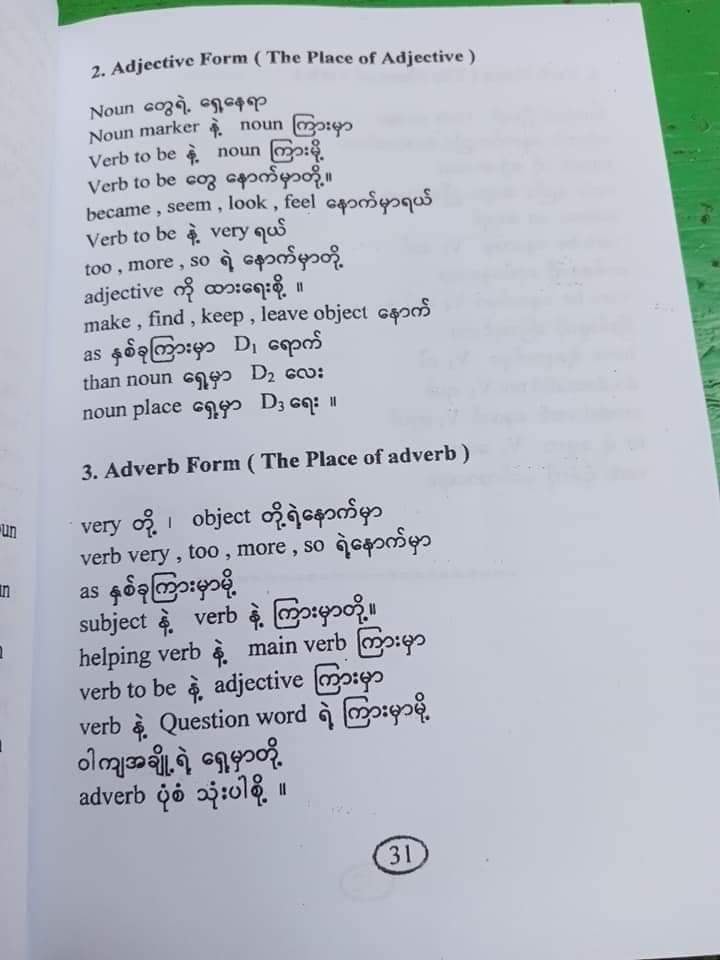 2. Adjective Form ( The Place of Adjective )
Noun တွေရဲ့ ရှေ့နေရာ
Noun marker နဲ့ noun ကြားမှာ
Verb to be နဲ့ noun ကြားမို့
Verb to be တွေ နောက်မှာတို့။
became , seem , look , feel နောက်မှာရယ်
Verb to be နဲ့ very ရယ်
too , more , so ရဲ့ နောက်မှာတို့
adjective ကို ထားရေးစို့ ။
make , find , keep , leave object နောက်
as နှစ်ခုကြားမှာ D₁ ရောက်
than noun ရှေ့မှာ D₂ လေး
noun place ရှေ့မှာ D₃ ရေး ။
3. Adverb Form ( The Place of adverb )
very တို့ ၊ object တို့ရဲ့နောက်မှာ
verb very , too , more , so ရဲ့နောက်မှာ
as နှစ်ခုကြားမှာမို့
subject နဲ့ verb နဲ့ ကြားမှာတို့။
helping verb နဲ့ main verb ကြားမှာ
verb to be နဲ့ adjective ကြားမှာ
verb နဲ့ Question word ရဲ့ ကြားမှာမို့
ဝါကျအချို့ရဲ့ ရှေ့မှာတို့
adverb ပုံစံ သုံးပါစို့ ။
31